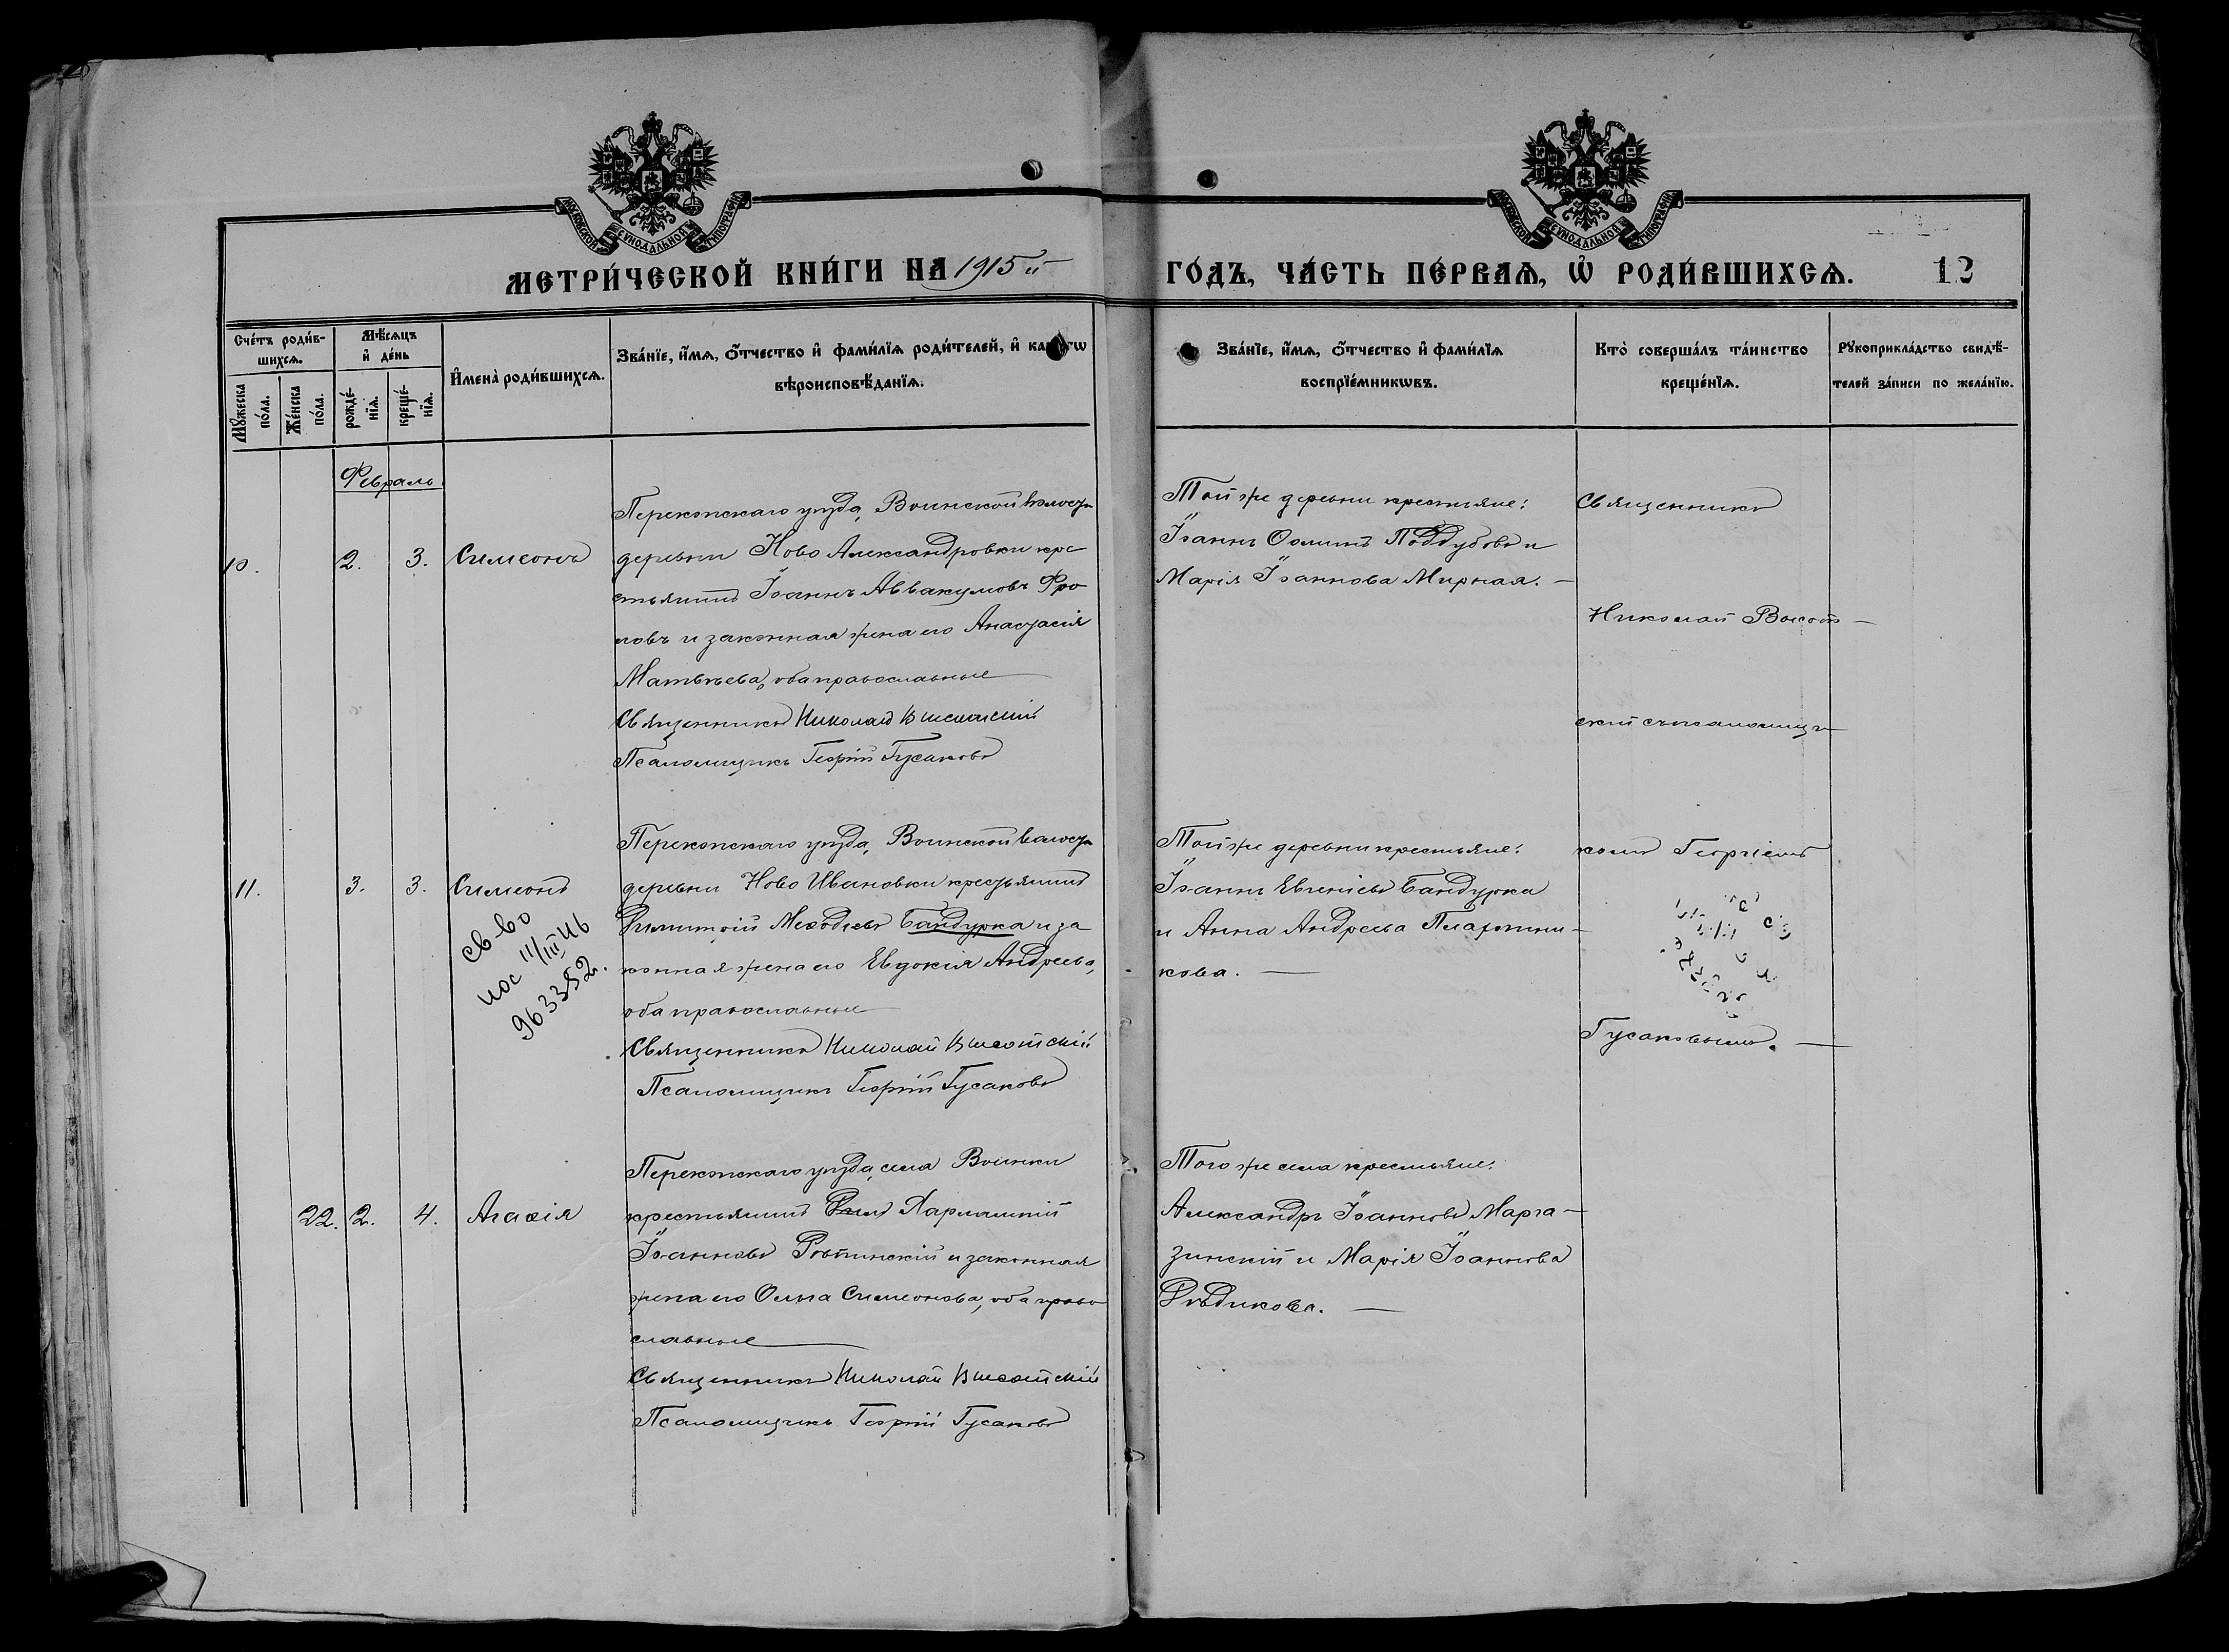 МОСКОВСКОЙ СѴНОДАЛЬНОЙ ТИПОГРАФІИ
МОСКОВСКОЙ СѴНОДАЛЬНОЙ ТИПОГРАФІИ
МЕТРИ́ЧЕСКОЙ КНИ́ГИ НА 1915 й
ГО́ДЪ, ЧА́СТЬ ПЕ́РВАѦ, Ѡ҆ РОДИ́ВШИХСѦ. 12
Сче́тъ роди́в-
шихсѧ.
Мѣ́сѧцъ
и҆ де́нь
Мꙋ́жеска по́ла.
Же́нска по́ла.
рожде́-нїѧ.
креще́-нїѧ.
И҆мена̀ роди́вшихсѧ.
Зва́нїе, и҆́мѧ, ѻ҆́тчество и҆ фами́лїѧ роди́телей, и҆
вѣроисповѣ́данїѧ.
Зва́нїе, и҆́мѧ, ѻ҆́тчество и҆ фами́лїѧ
воспрїе́мникѡвъ.
Кто̀ соверша́лъ та́инство
креще́нїѧ.
Рꙋкоприкла́дство свидѣ́-
телей за́писи по жела́нїю.
Февраль
10. 2. 3. Симеонъ
Перекопскаго уѣзда, Воинской волости
деревни Ново Александровки кре
стьянинъ Іоаннъ Аввакумовъ Фро
ловъ и законная жена его Анастасія
Матвѣева, оба православные
Священникъ Николай Высотскій
Псаломщикъ Георгій Гусаковъ
Той же деревни крестьяне:
Іоаннъ Ѳоминъ Поддубовъ и
Марія Іоаннова Мирная. —
Священникъ
Николай Высот-
скій съ псаломщи-
11. 3. 3. Симеонъ
св-во
963352.
Перекопскаго уѣзда, Воинской волости
деревни Ново Ивановки крестьянинъ
Димитрій Меѳодіевъ Бандурка и за
конная жена его Евдокія Андреева,
оба православные
Священникъ Николай Высотскій
Псаломщикъ Георгій Гусаковъ
Той же деревни крестьяне:
Іоаннъ Евгеніевъ Бандурка
и Анна Андреева Плотни-
кова. —
комъ Георгіемъ
Гусаковымъ. —
22. 2. 4. Агаѳія
Перекопскаго уѣзда, села Воинки
крестьянинъ Харлампій
Іоанновъ Рѣпинскій и законная
жена его Ольга Симеонова, оба право
славные
Священникъ Николай Высотскій
Псаломщикъ Георгій Гусаковъ
Того же села крестьяне:
Александръ Іоанновъ Марга-
зинскій и Марія Іоаннова
Рѣдикова. —